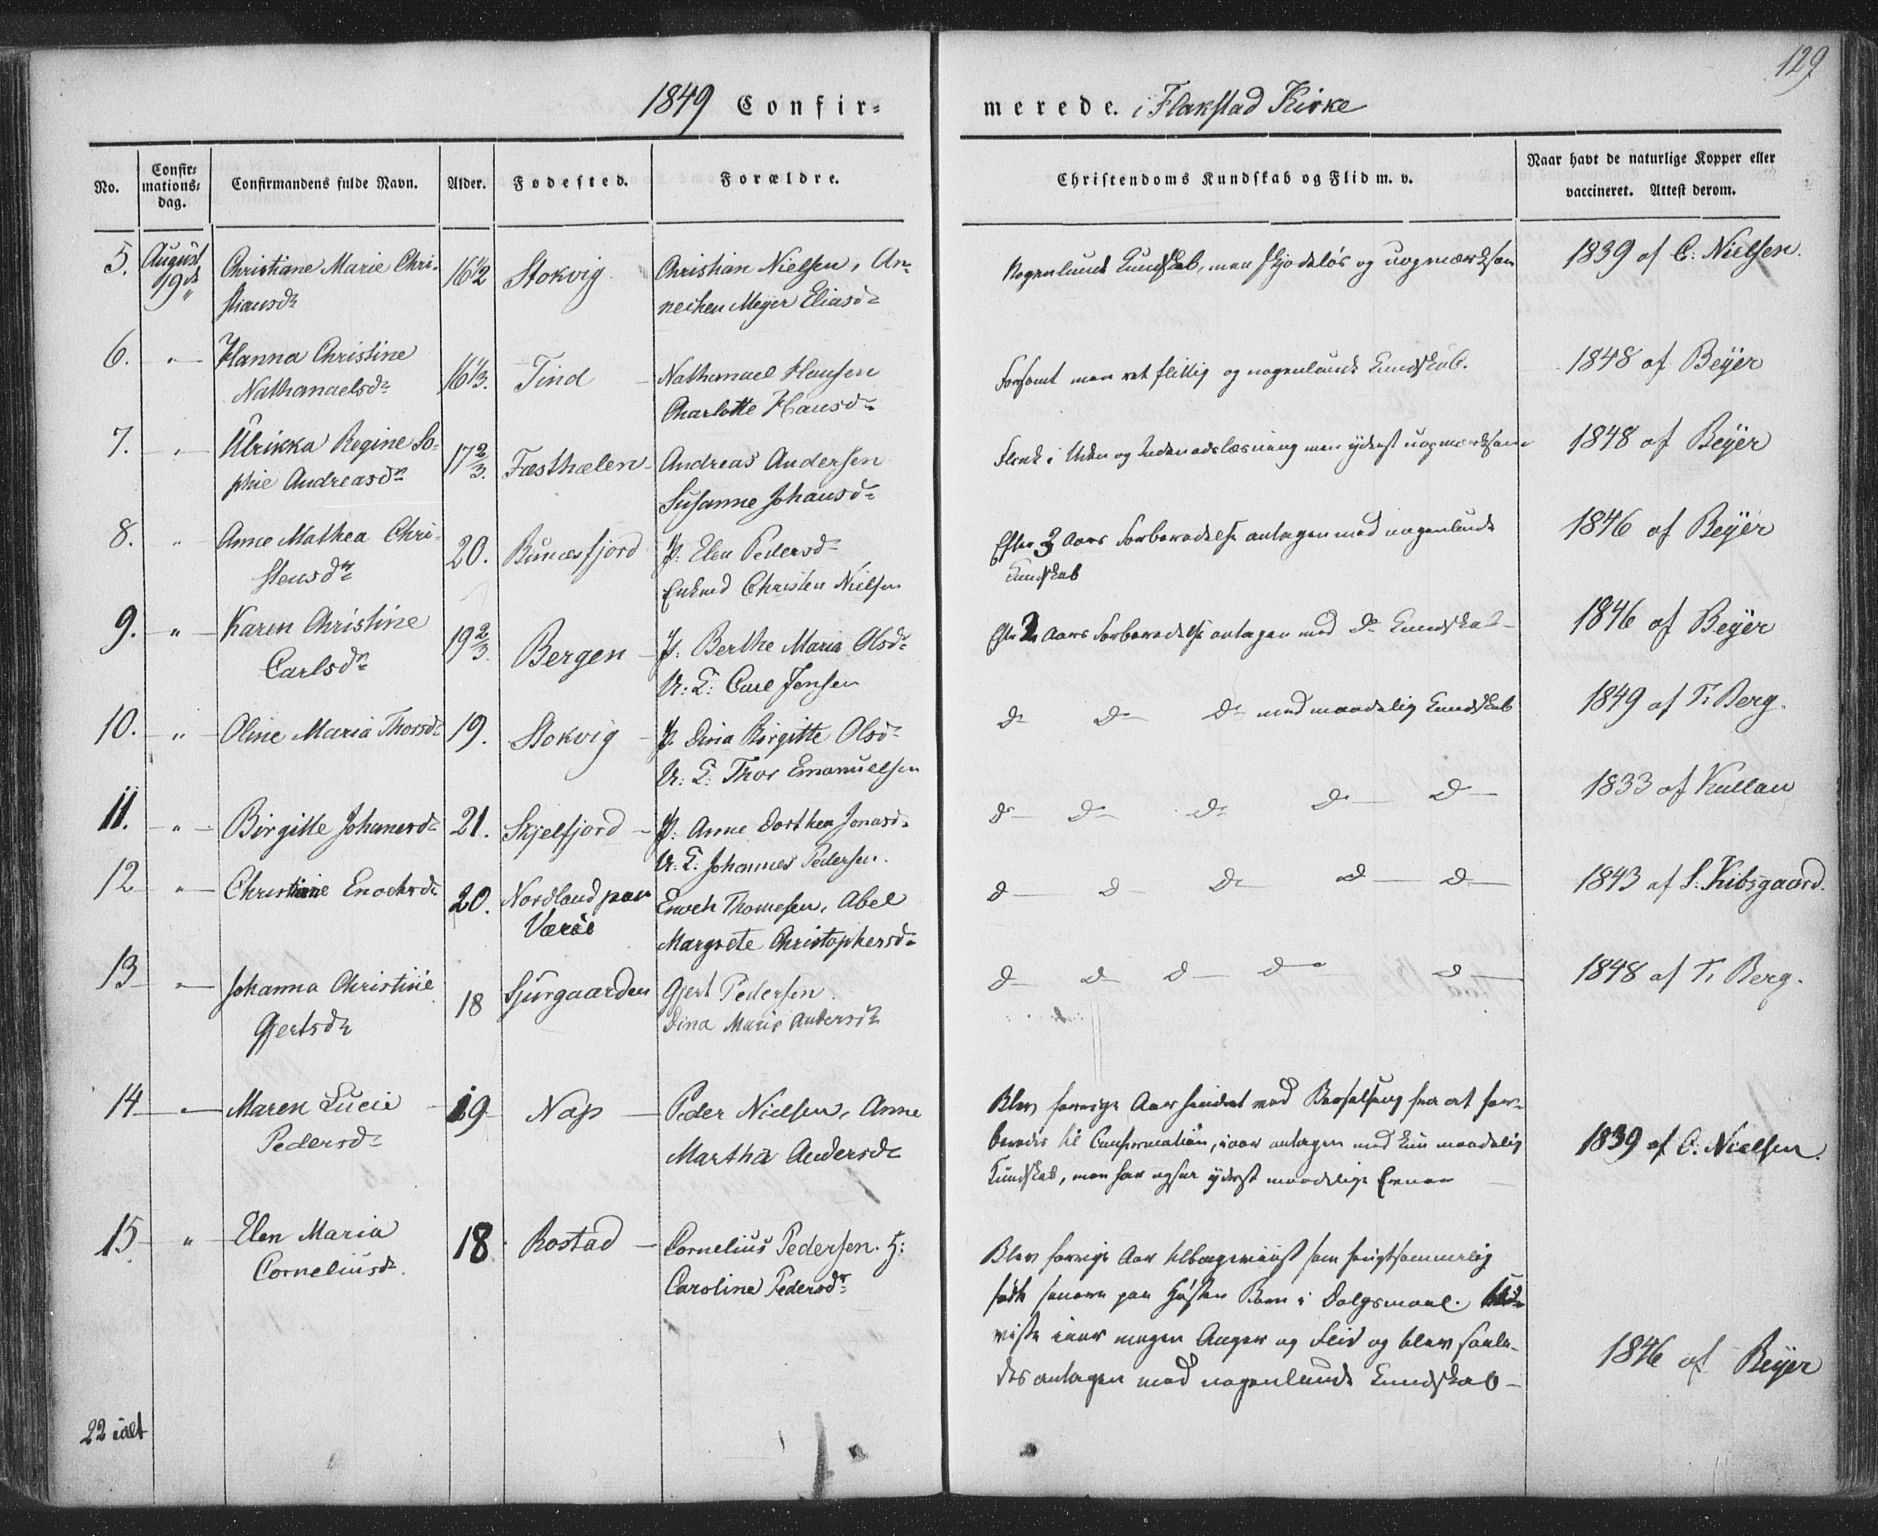 129
1849 Confir-merede. i Flakstad Kirke
No. | Confir-mations-dag. | Confirmandens fulde Navn. | Alder. | Fødested. | Forældre. | Christendoms Kundskab og Flid m. v. | Naar havt de naturlige Kopper eller vaccineret. Attest derom.
5. August Christiane Marie Chri- 16 1/2 Stokvig Christian Nielsen, An- Nogenlunde Kundskab, men skjødeløs og uopmærksom 1839 af C. Nielsen.
19de stiansdr neiken Meyer Eliasdr
6. " Hanna Christine 16 1/3. Tind Nathanael Hansen Forsømt men ret flittig og nogenlunde Kundskab. 1848 af Beyer
Nathanaelsdr Charlotte Hansdr
7. " Ulrikka Regine So- 17 2/3. Fæsthælen Andreas Andersen Flink i Uden og Indenadslæsning men yderst uopmærksom 1848 af Beyer
phie Andreasdr Susanne Johansdr
8. " Anne Mathea Chri- 20. Bunæsfjord P. Elen Pedersdr Efter 3 Aars Forberedelse antagen med nogenlunde 1846 af Beyer
stensdr Enkmd Christen Nielsen Kundskab
9. " Karen Christine 19 2/3. Bergen P. Berthe Maria Olsdr Eftr 2 Aars Forberedelse antagen med do Kundskab 1846 af Beyer
Carlsdr U. K. Carl Jensen
10. " Oline Maria Thorsdr 19. Stokvig P. Dina Birgitte Olsdr do do do med maadelig Kundskab 1849 af T. Berg.
U. K. Thor Emanuelsen
11. " Birgitte Johanesdr 21. Skjelfjord P. Anne Dorthea Jonasdr do do do do do 1833 af Kullan
U. K. Johannes Pedersen.
12 " Christiane Enochsdr 20. Nordland paa Enoch Thomesen, Abel do do do do do 1843 af S. Kibsgaard.
Værøe Margrete Christophersdr
13 " Johanna Christine 18 Sjurgaarden Gjert Pedersen do do do do do 1848 af T. Berg.
Gjertsdr Dina Marie Andersdr
14 " Maren Lucie 19 Nap Peder Nielsen, Anne Blev forrige Aar hindret ved Barselseng fra at for- 1839 af C. Nielsen.
Pedersdr Martha Andersdr beredes til Confirmation, iaar antagen med kun maadelig
Kundskab, men har ogsaa yderst maadelige Evner
15 " Elen Maria 18 Rostad Cornelius Pedersen. H: Blev forrige Aar tilbageviist som
Corneliusdr. Caroline Pedersdr fødte senere paa Høsten Barn i Dølgsmaal. Ud-
viste iaar megen Anger og Flid og blev saale-
des antagen med nogenlunde Kundskab 1846 af Beyer
22 ialt